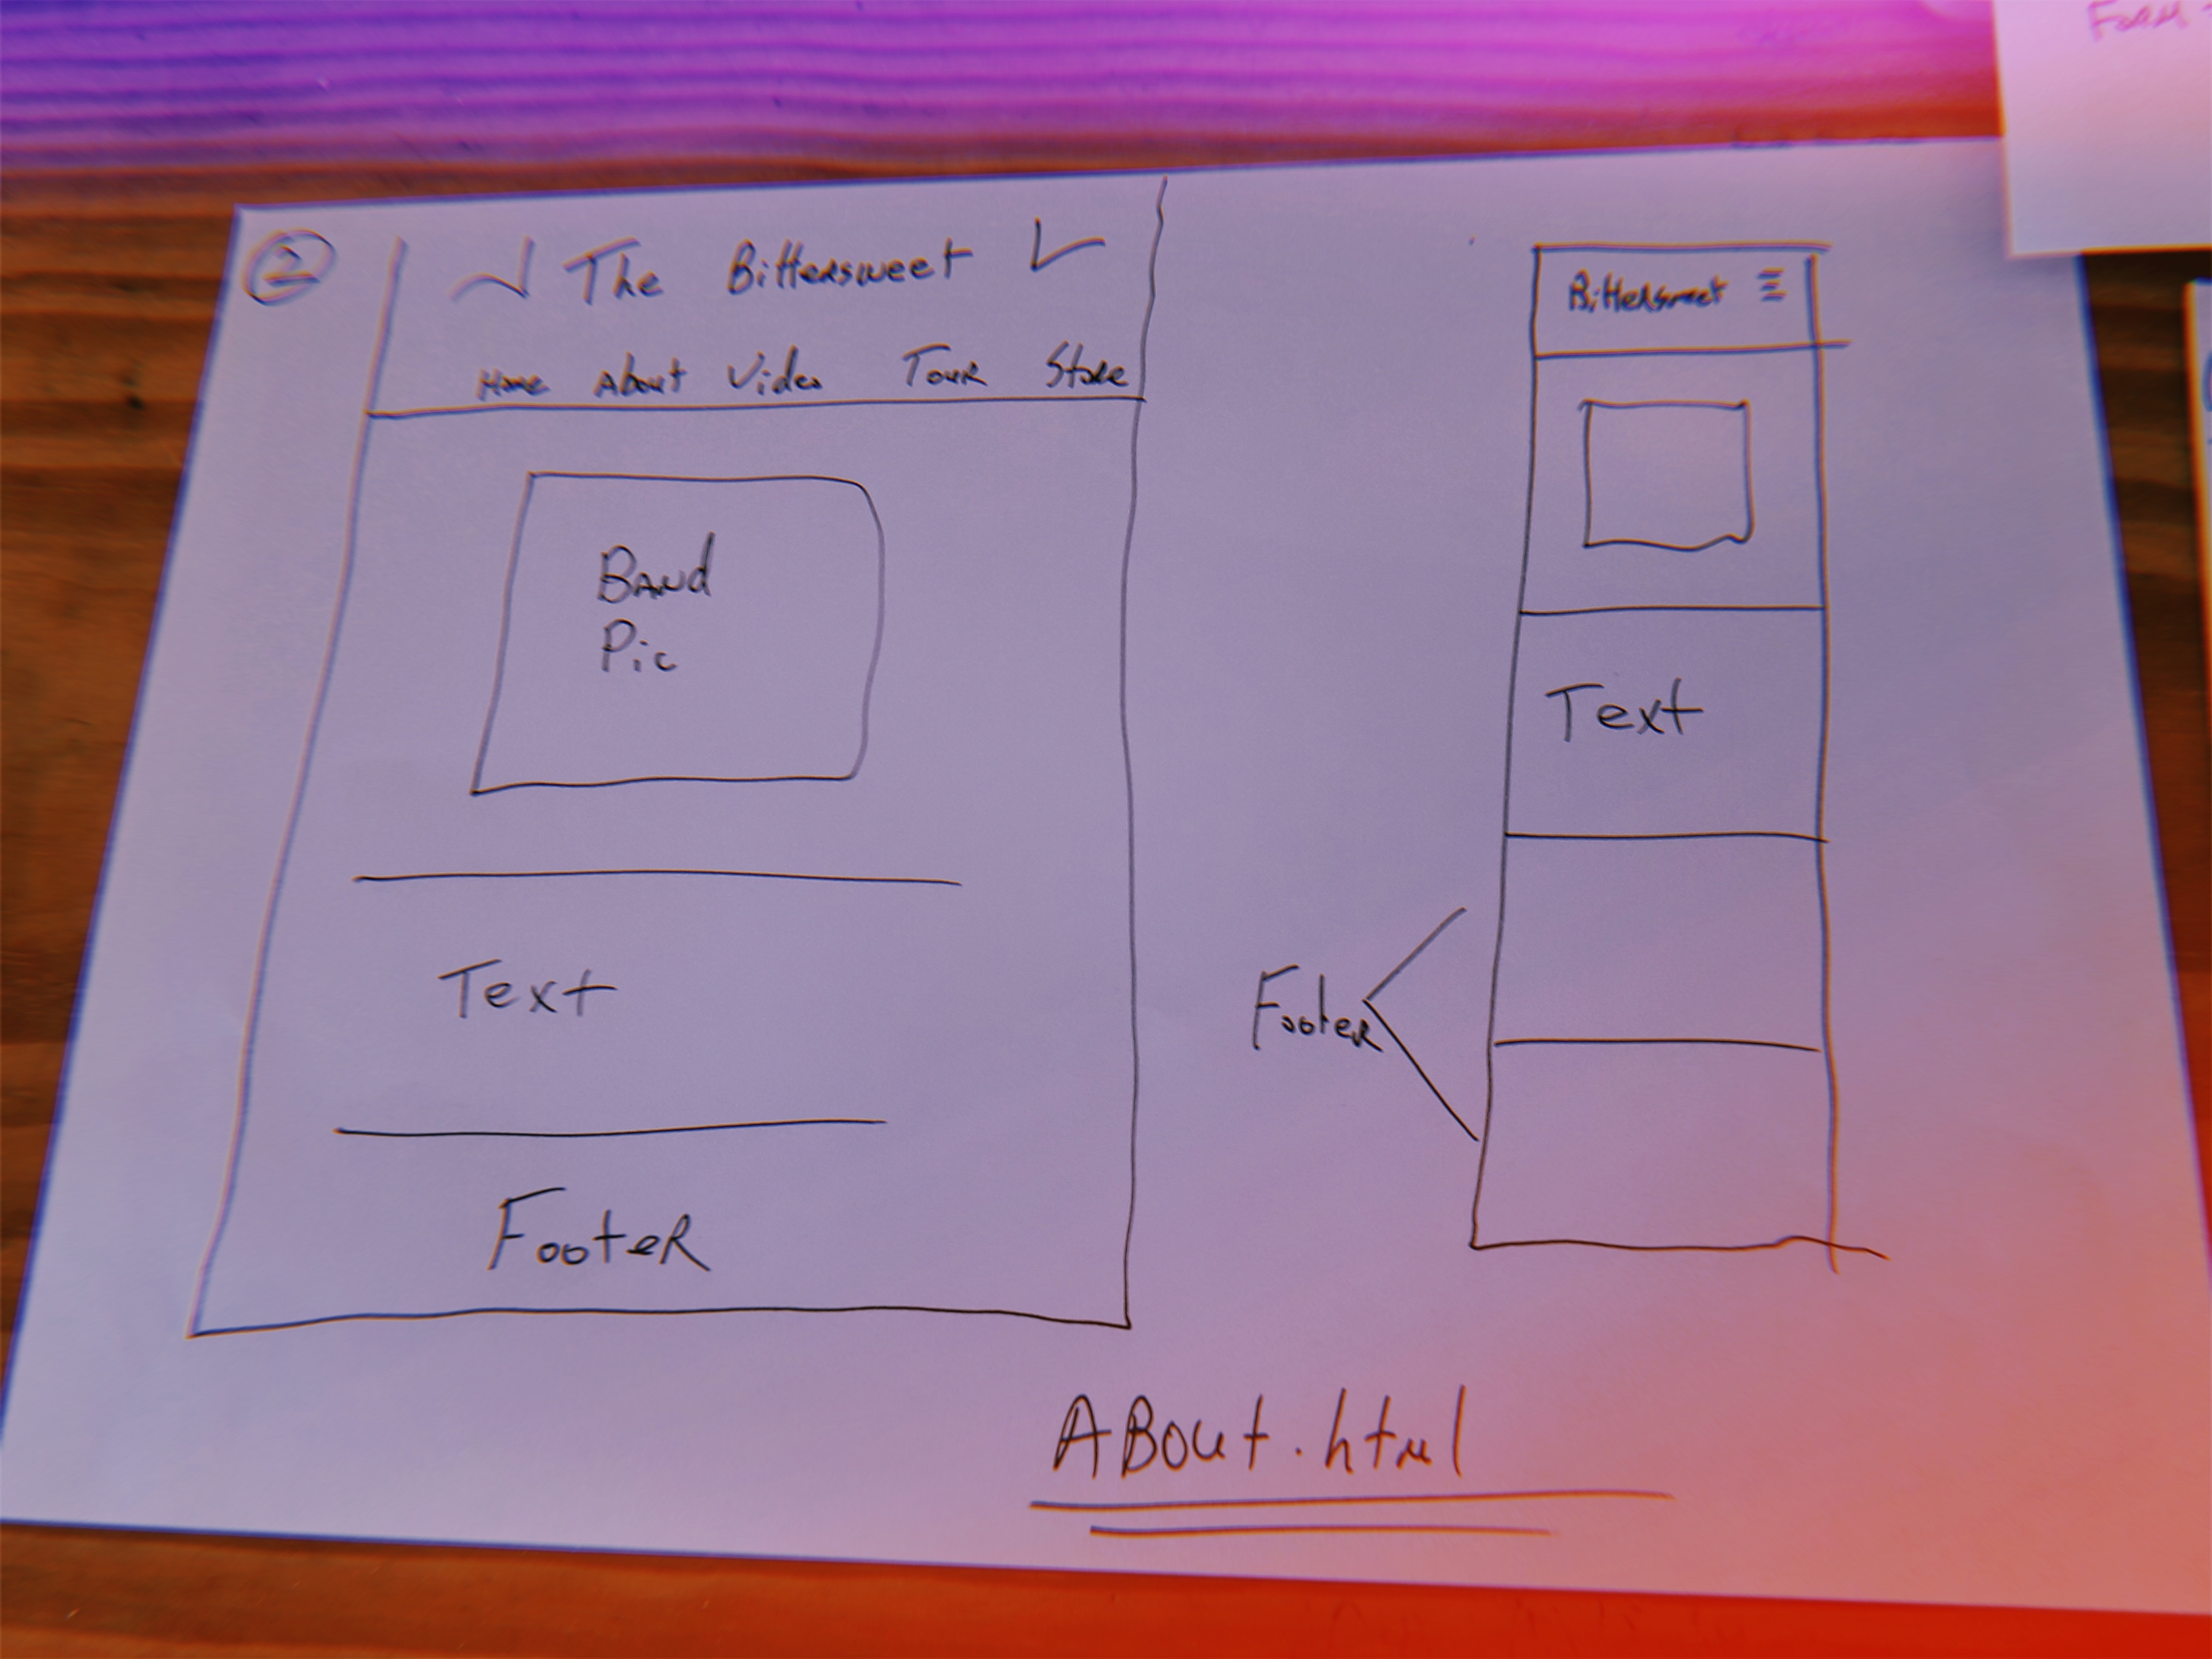 2
The Bittersweet
Home About Video Tour Store
Band
Pic
Text
Footer
Bittersweet
Text
Footer
About.html
Form